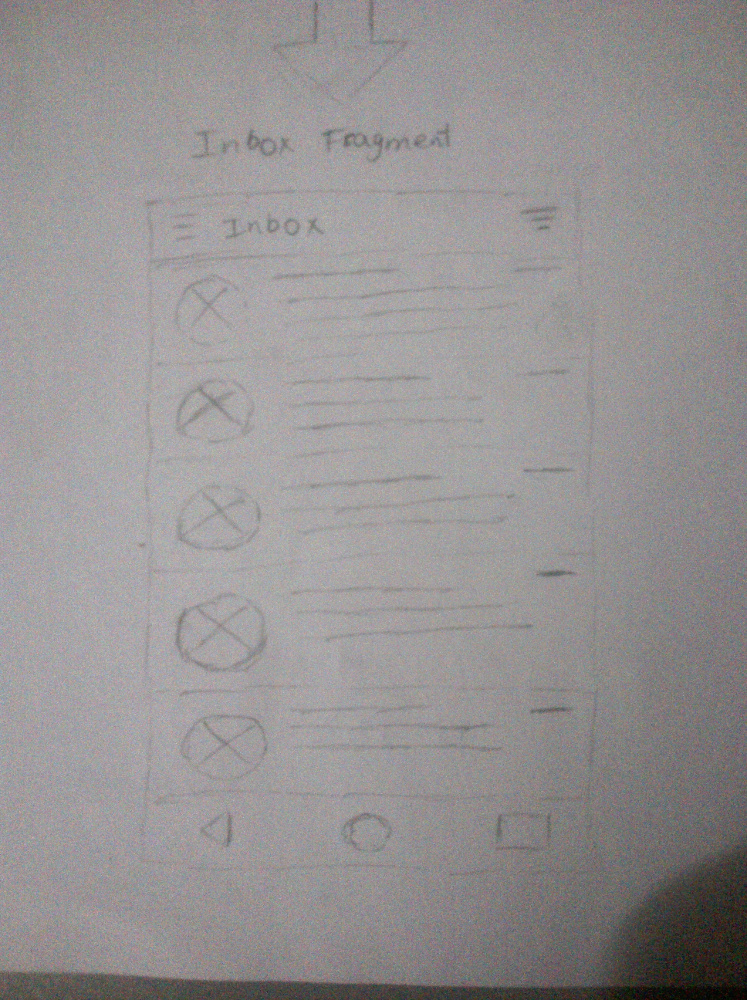 Inbox Fragment
Inbox